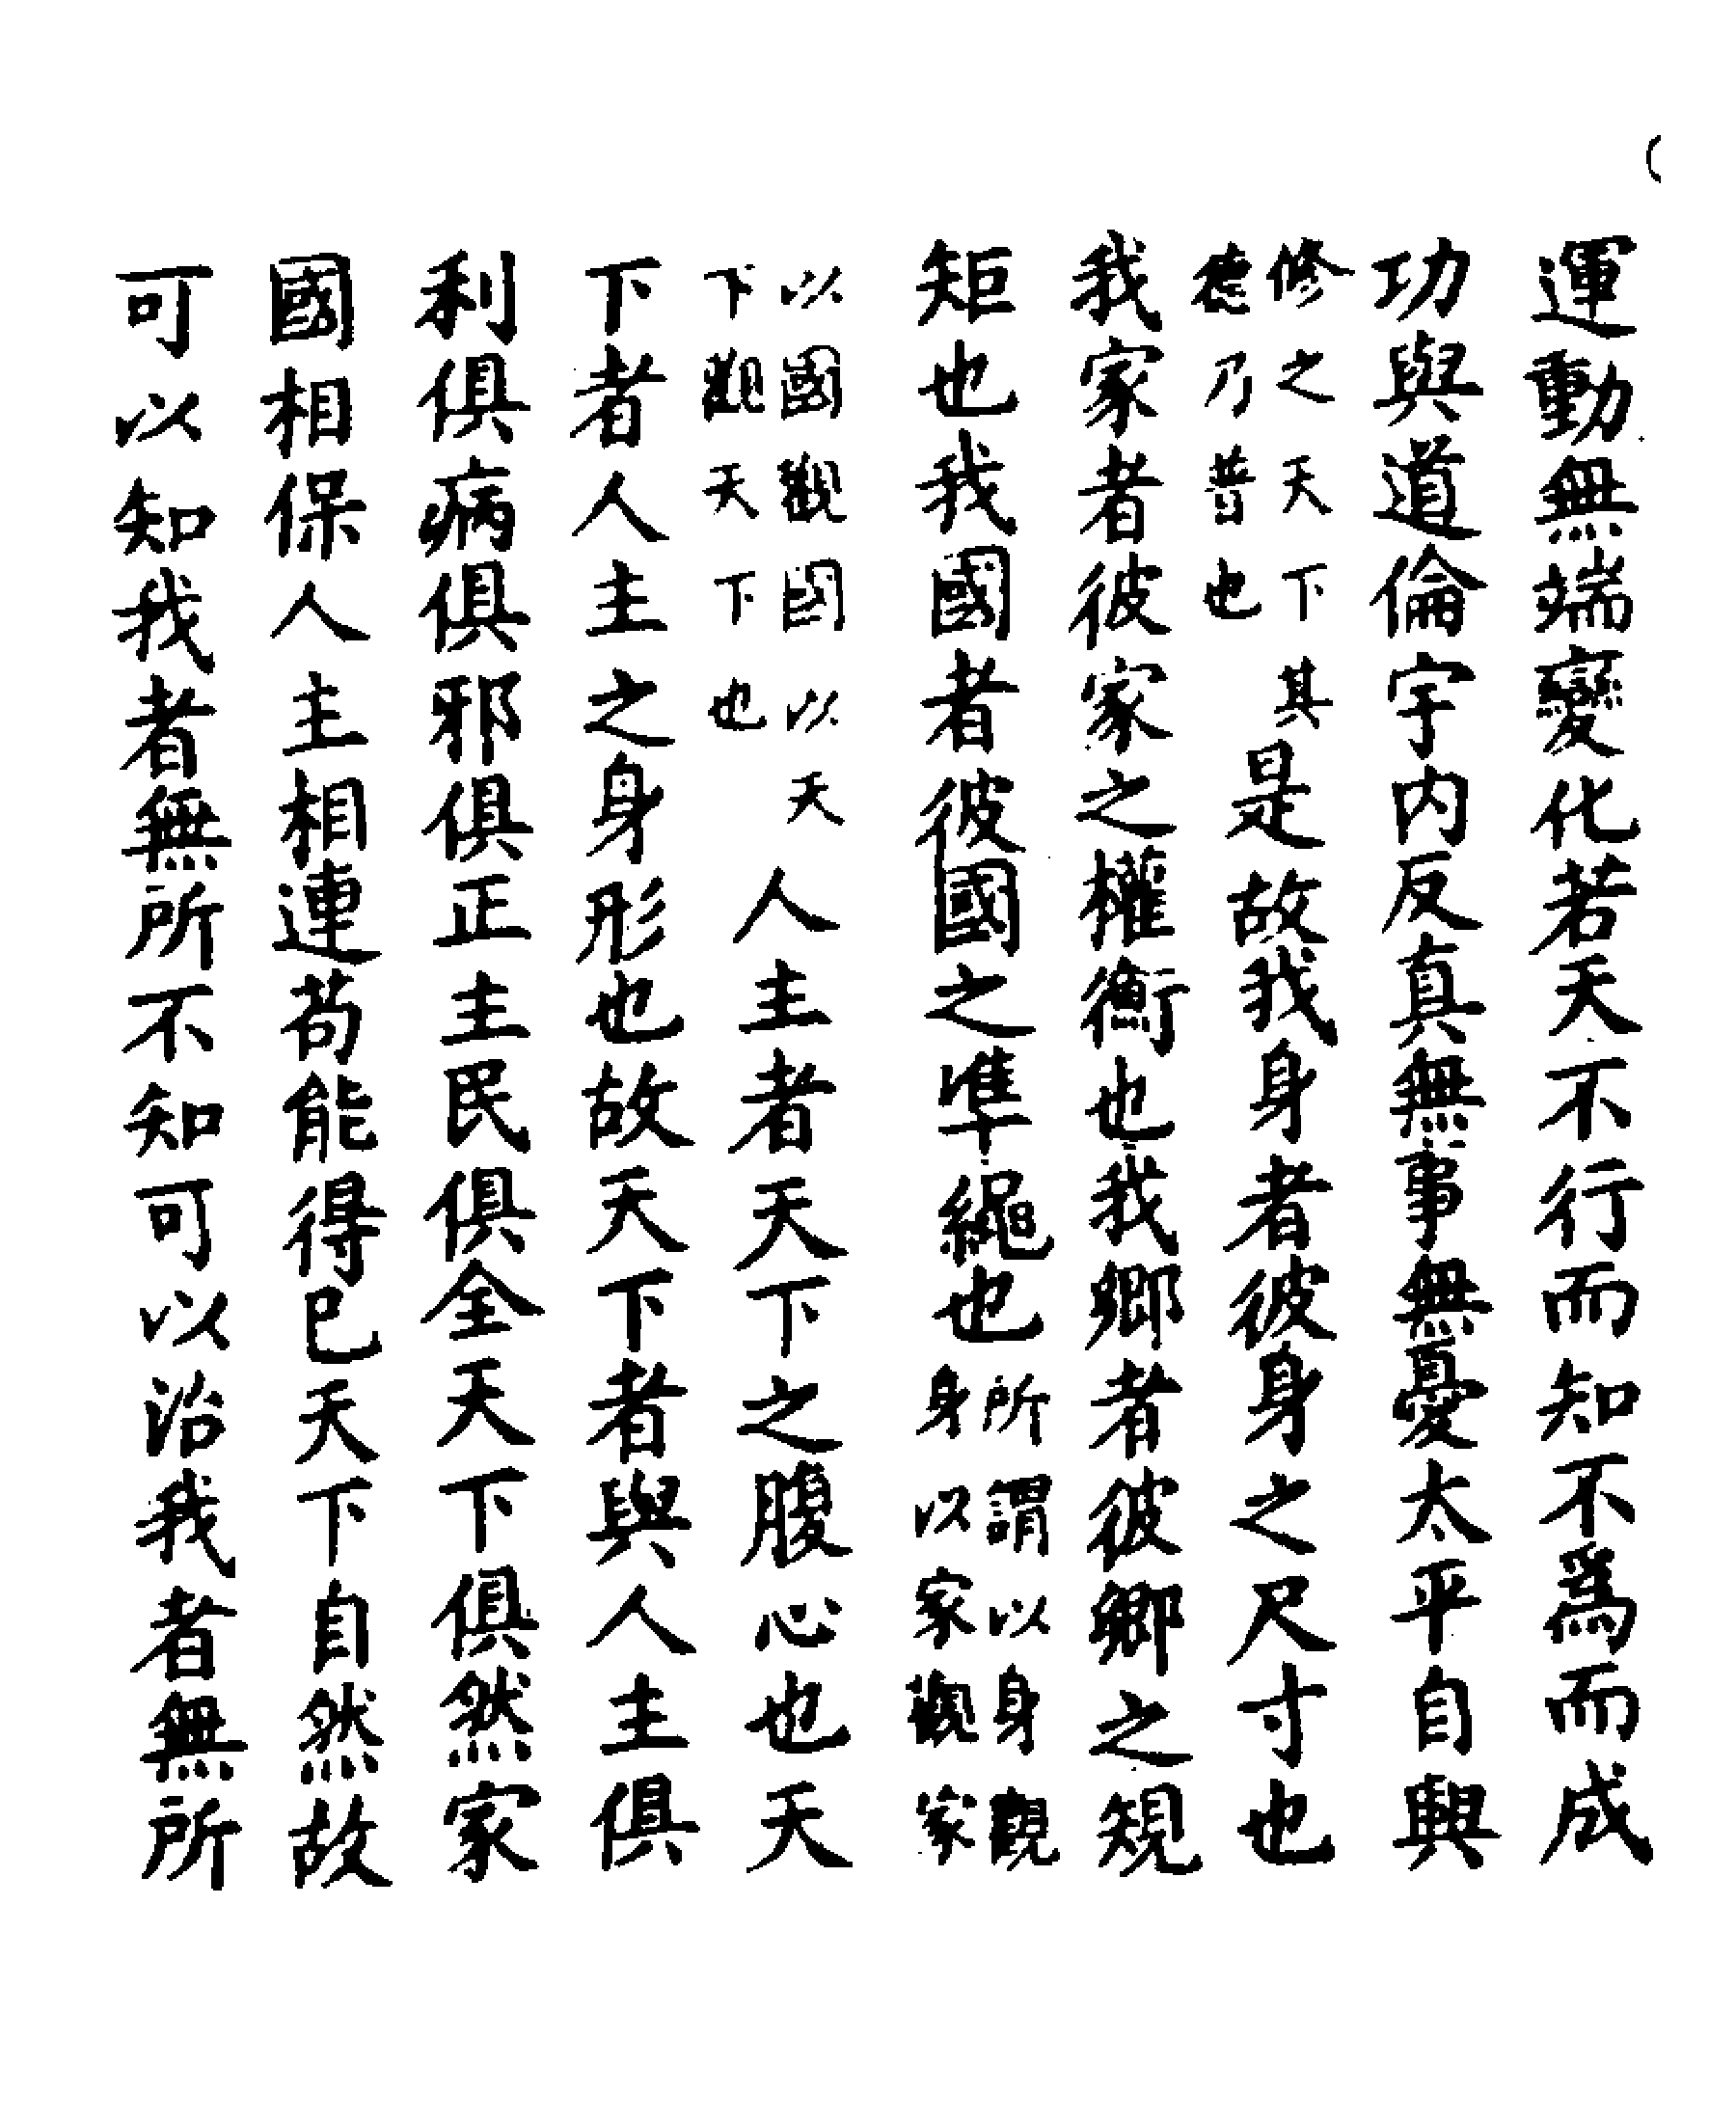 運動無端變化若天不行而知不爲而成
功與道倫宇内反真無事無憂太平自興
修之天下其
德乃普也
是故我身者彼身之尺寸也
我家者彼家之權衡也我鄉者彼鄉之規
矩也我國者彼國之準繩也
所謂以身觀
身以家觀家
以國觀國以天
下觀天下也
人主者天下之腹心也天
下者人主之身形也故天下者與人主俱
利俱病俱邪俱正主民俱全天下俱然家
國相保人主相連苟能得已天下自然故
可以知我者無所不知可以治我者無所